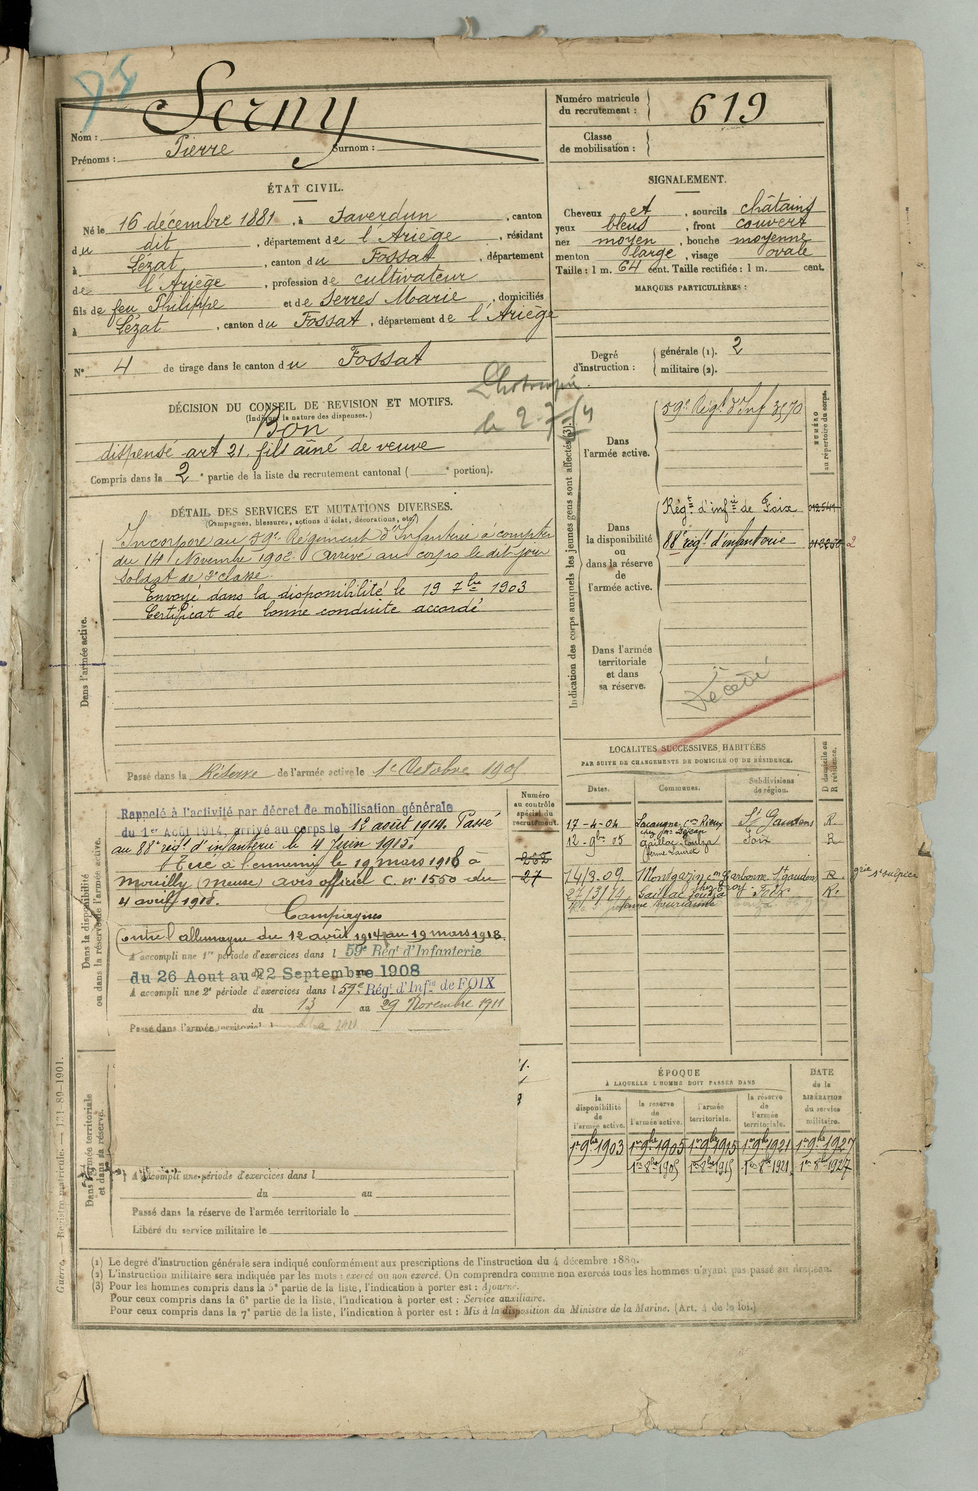 Nom : Serny
Prénoms : Pierre Surnom :
Numéro matricule du recrutement : 619
Classe de mobilisation :
ÉTAT CIVIL.
Né le 16 décembre 1881, à Saverdun, canton
du dit, département de l'Ariège, résidant
à Lézat, canton du Fossat, département
de l'Ariège, profession de cultivateur
fils de feu Philippe et de Serres Marie, domiciliés
à Lézat, canton du Fossat, département de l'Ariège
N° 4 de tirage dans le canton du Fossat
SIGNALEMENT.
Cheveux et, sourcils châtains
yeux bleus, front couvert
nez moyen, bouche moyenne
menton large, visage ovale
Taille : 1 m. 64 cent. Taille rectifiée : 1 m. cent.
MARQUES PARTICULIÈRES :
Degré d'instruction : générale (1). 2
militaire (2).
DÉCISION DU CONSEIL DE REVISION ET MOTIFS.
(Indiquer la nature des dispenses.)
Bon
dispensé art 21. fils aîné de veuve
Compris dans la 2e partie de la liste du recrutement cantonal ( e portion).
DÉTAIL DES SERVICES ET MUTATIONS DIVERSES.
(Campagnes, blessures, actions d'éclat, décorations, etc.)
Dans l'armée active.
Incorporé au 59e Régiment d'Infanterie à compter
du 14 Novembre 1902 arrivé au corps le dit jour
soldat de 2e classe.
Envoyé dans la disponibilité le 19 7bre 1903
Certificat de bonne conduite accordé
Passé dans la Réserve de l'armée active le 1er Octobre 1905
Indication des corps auxquels les jeunes gens sont affectés (3).
NUMÉRO au répertoire du corps.
Dans l'armée active.
59e Régt d'Inf 3570
Dans la disponibilité ou dans la réserve de l'armée active.
Régt d'infie de Foix
88e régt d'infanterie
Dans l'armée territoriale et dans sa réserve.
Décédé
LOCALITÉS SUCCESSIVES HABITÉES
PAR SUITE DE CHANGEMENTS DE DOMICILE OU DE RÉSIDENCE.
Dates. Communes. Subdivisions de région. D domicile ou R résidence.
17-4-04 Lacaugne, con Rieux St Gaudens R
12-9bre 05 Gaillac-Toulza Foix R
14/3.09 Montgazin con Carbonne St Gaudens R
27/3/14 Gaillac Toulza Foix R
Dans la disponibilité ou dans la réserve de l'armée active.
Numéro au contrôle spécial du recrutement.
27
Rappelé à l'activité par décret de mobilisation générale
du 1er Août 1914, arrivé au corps le 12 août 1914. Passé
au 88e régt d'infanterie le 4 juin 1915.
Tué à l'ennemi le 19 mars 1918 à
Mouilly (Meuse) avis officiel C. n° 1550 du
4 avril 1918.
Campagnes
Contre l'allemagne du 12 août 1914 au 19 mars 1918.
A accompli une 1re période d'exercices dans l 59e Régt d'Infanterie
du 26 Aout au 22 Septembre 1908
A accompli une 2e période d'exercices dans l 59e Régt d'Infie de FOIX
du 13 au 29 Novembre 1911
Passé dans l'armée territoriale l
Dans l'armée territoriale et dans sa réserve.
A accompli une période d'exercices dans l
du au
Passé dans la réserve de l'armée territoriale le
Libéré du service militaire le
ÉPOQUE
À LAQUELLE L'HOMME DOIT PASSER DANS
la disponibilité de l'armée active. la réserve de l'armée active. l'armée territoriale. la réserve de l'armée territoriale. DATE de la LIBÉRATION du service militaire.
1er 9bre 1903 1er 9bre 1905 1er 9bre 1915 1er 9bre 1921 1er 9bre 1927
1er 8bre 1905 1er 8bre 1915 1er 8bre 1921 1er 8bre 1927
(1) Le degré d'instruction générale sera indiqué conformément aux prescriptions de l'instruction du 4 décembre 1889.
(2) L'instruction militaire sera indiquée par les mots : exercé ou non exercé. On comprendra comme non exercés tous les hommes n'ayant pas passé au drapeau.
(3) Pour les hommes compris dans la 5e partie de la liste, l'indication à porter est : Ajourné.
Pour ceux compris dans la 6e partie de la liste, l'indication à porter est : Service auxiliaire.
Pour ceux compris dans la 7e partie de la liste, l'indication à porter est : Mis à la disposition du Ministre de la Marine. (Art. 4 de la loi.)
Guerre. — Registre matricule. — 131-80-1901.